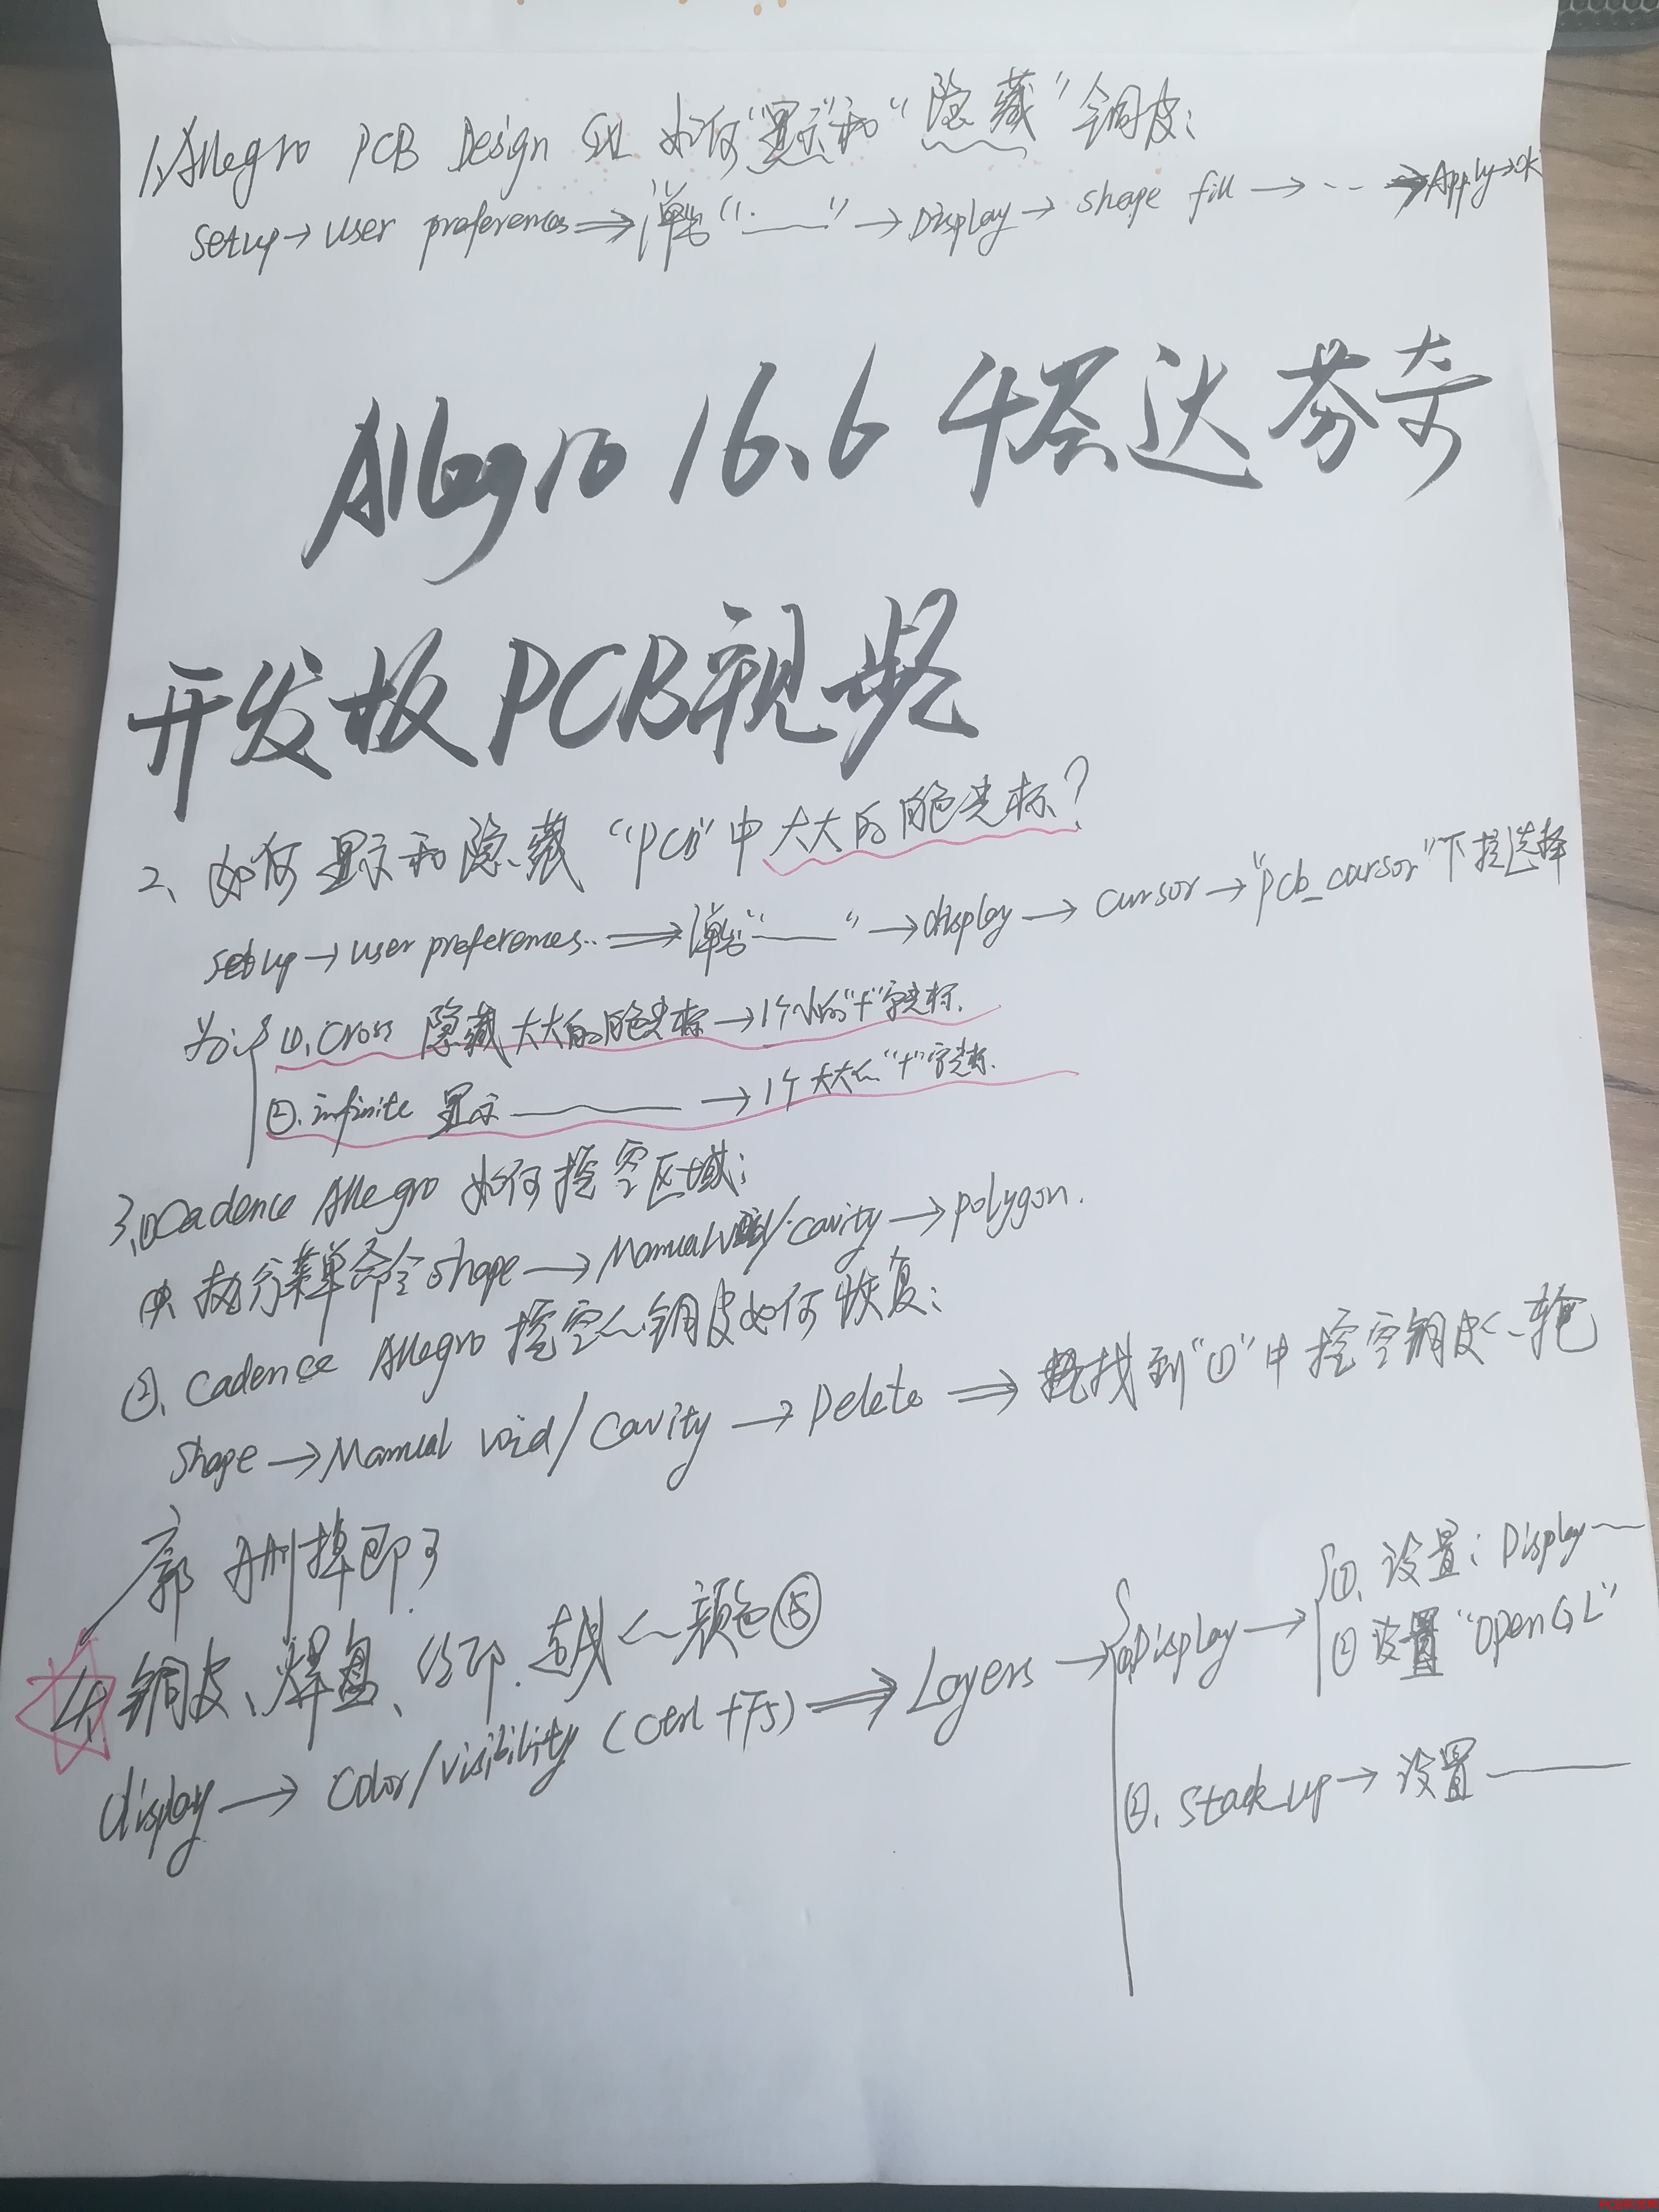 1、Allegro PCB Design GXL 如何“显示”和“隐藏”铜皮：
setup→user preferences⇒弹出“……”→Display→shape fill→……→Apply→OK
Allegro 16.6 4层达芬奇
开发板PCB视频
2、如何显示和隐藏“PCB”中大大的光标？
setup→user preferences..⇒弹出“——”→display→cursor→“pcb_cursor”下拉选择
为：①.Cross 隐藏大大的光标→1个小的“十”字光标.
②.infinite 显示——→1个大大的“十”字光标.
3、①Cadence Allegro 如何挖空区域：
执行菜单命令shape→Manual void/cavity→polygon.
②、Cadence Allegro 挖空的铜皮如何恢复：
shape→Manual void/Cavity→Delete⇒找到“①”中挖空铜皮的轮
廓 删掉即可
4、铜皮、焊盘、丝印、走线的颜色
display→Color/visibility(Ctrl+F5)⇒Layers→①Display→①、设置：Display——
②设置“OpenGL”
②、Stack_up→设置——
PCB联盟网